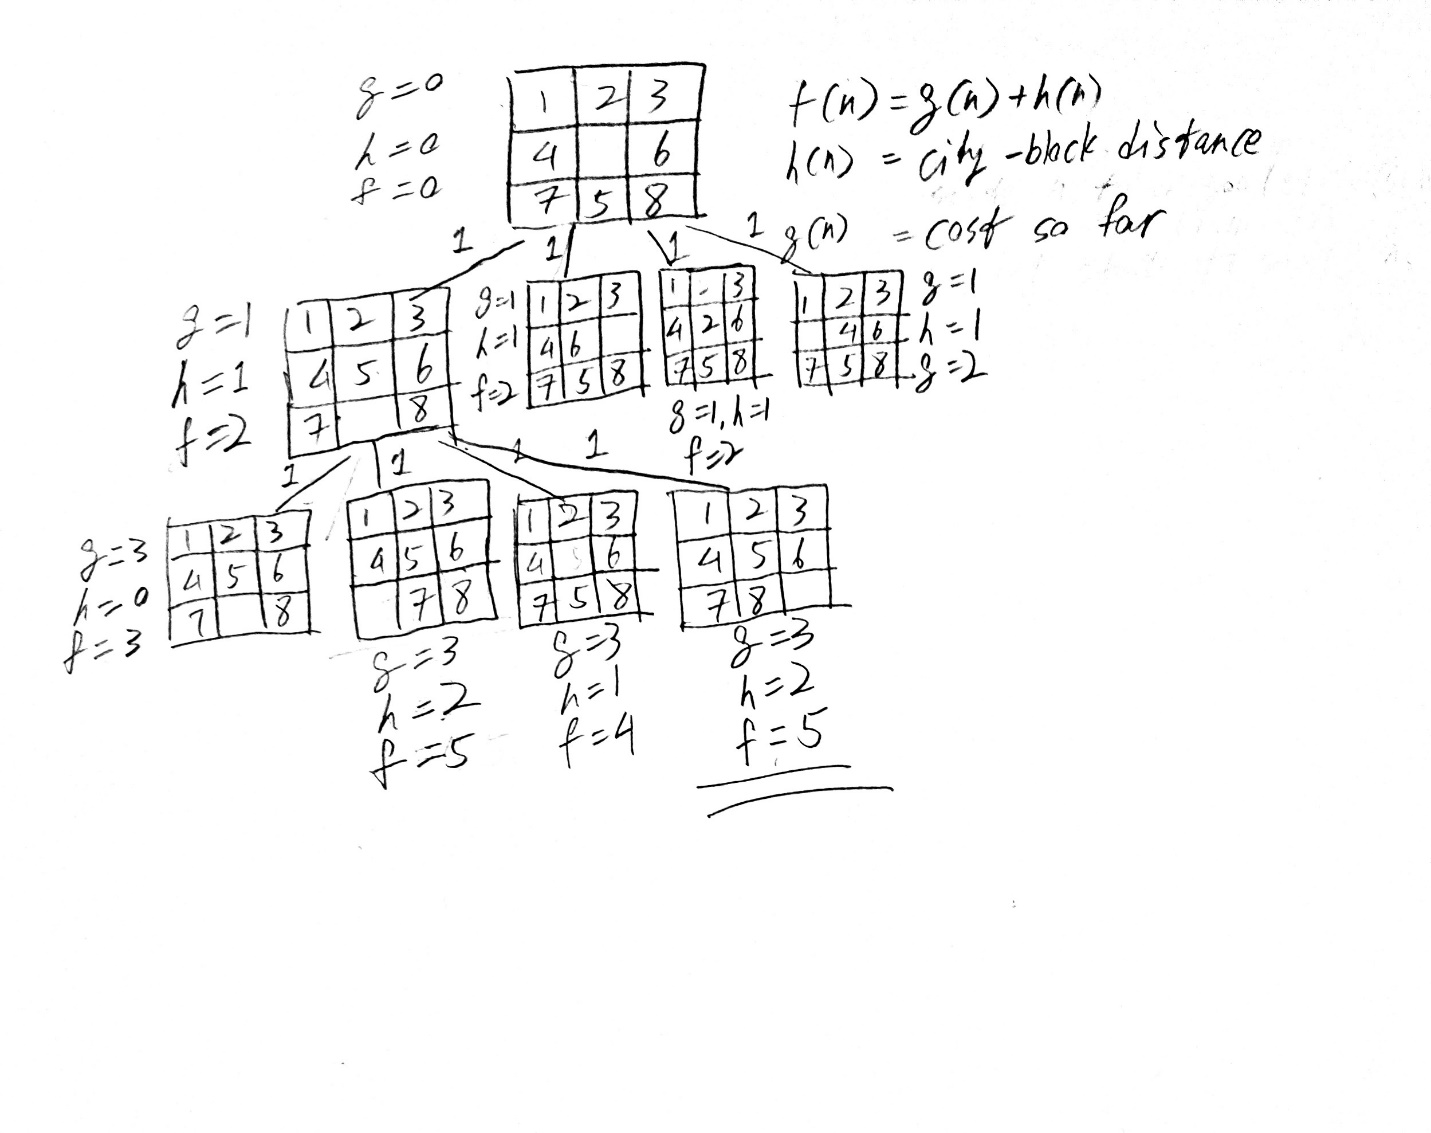 g=0
h=0
f=0
1 2 3
4 6
7 5 8
f(n)=g(n)+h(n)
h(n) = city-block distance
g(n) = cost so far
1 1 1 1
g=1
h=1
f=2
1 2 3
4 5 6
7 8
g=1
h=1
f=2
1 2 3
4 6
7 5 8
1 - 3
4 2 6
7 5 8
g=1, h=1
f=2
1 2 3
4 6
7 5 8
g=1
h=1
g=2
1 1 1 1
g=3
h=0
f=3
1 2 3
4 5 6
7 8
1 2 3
4 5 6
7 8
g=3
h=2
f=5
1 2 3
4 5 6
7 5 8
g=3
h=1
f=4
1 2 3
4 5 6
7 8
g=3
h=2
f=5